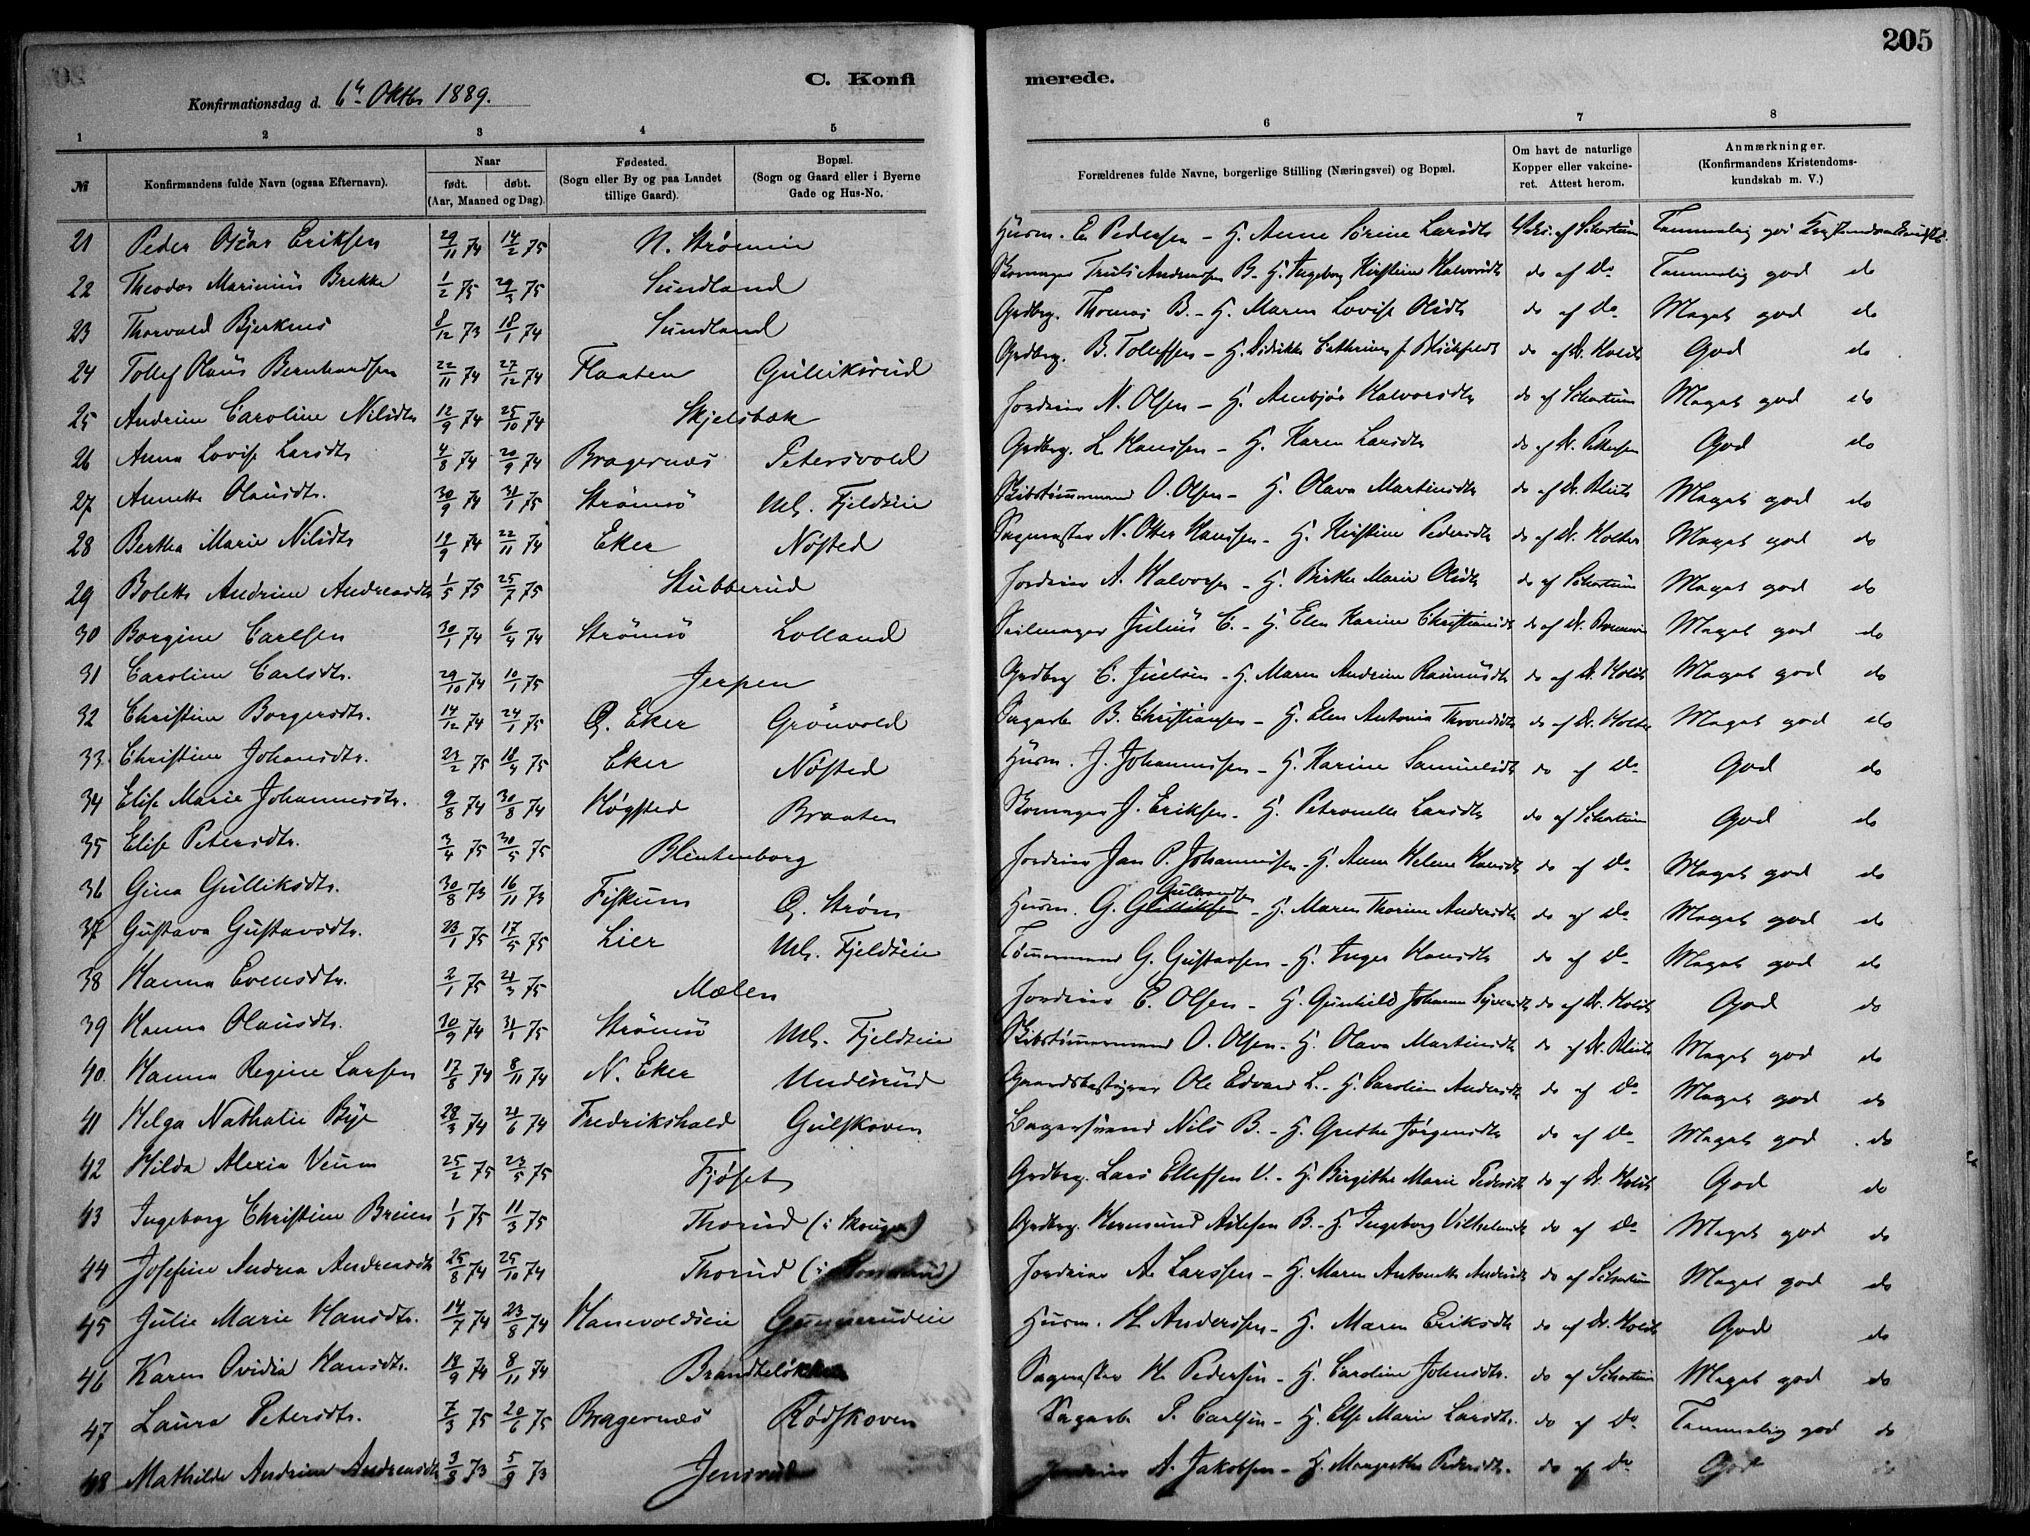 205
C. Konfi merede.
Konfirmationsdag d. 6te Oktbr 1889.
1 2 3 4 5 6 7 8
№ Konfirmandens fulde Navn (ogsaa Efternavn). Naar født. døbt. (Aar, Maaned og Dag). Fødested. (Sogn eller By og paa Landet tillige Gaard). Bopæl. (Sogn og Gaard eller i Byerne Gade og Hus-No. Forældrenes fulde Navne, borgerlige Stilling (Næringsvei) og Bopæl. Om havt de naturlige Kopper eller vakcineret. Attest herom. Anmærkninger. (Konfirmandens Kristendomskundskab m. V.)
21 Peder Oscar Eriksen 29/11 74 14/2 75 N. Strømm Husm. E. Pedersen – H. Anne Sørine Larsdtr af Schartum Tammelig god
22 Theodor Marinius Brekke 1/2 75 29/3 75 Sundland Skomager Truls Andersen B. – H. Ingeborg Kirstine Halvorsdtr do af Do Tammelig god do
23 Thorvald Bjerknes 8/12 73 18/1 74 Sundland Grdbrg. Thomas B. – H. Maren Lovise Olsdtr do af Do Meget god do
24 Tollef Olaus Bernhardsen 22/11 74 27/12 74 Flaaten Gulliksrud Grdbrg. B. Tollefsen – H. Didrikke Cathrine f. Blichfeldt do af Dr. Holdt God do
25 Andrine Caroline Nilsdtr 12/9 74 25/10 74 Skjelsbæk Jordeier N. Olsen – H. Annbjør Halvorsdtr do af Schartum Meget god do
26 Anna Lovise Larsdtr 4/8 74 20/9 74 Bragernæs Petersvold Grdbrg. L. Hanssen – H. Karen Larsdtr do af Dr. Pettersen God do
27 Annette Olausdtr. 30/9 74 31/1 75 Strømsø Mb. Fjeldeie Skibstømmermand O. Olsen – H. Olava Martinsdtr do af Dr. Meget god do
28 Bertha Marie Nilsdtr 19/9 74 22/11 74 Eker Nøsted Sagmester N. Otter Hanssen – H. Kirstine Pedersdtr do af Dr. Holter Meget god do
29 Bolette Andrine Andreasdtr 1/5 75 25/7 75 Stubberud Jordeier A. Halvorsen – H. Birthe Marie Olsdtr do af Schartum Meget god do
30 Borgine Carlsen 30/1 74 6/4 74 Strømsø Lolland Seilmager Julius C. – H. Elen Karine Christiansdtr do af Dr. Meget god do
31 Caroline Carlsdtr. 29/10 74 10/1 75 Jerpen Grdbrg C. Juelsen – H. Maren Andrine Rasmusdtr do af Dr. Holdt Meget god do
32 Christine Borgersdtr. 14/12 74 24/1 75 Ø. Eker Grønvold Sagarb. B. Christiansen – H. Elen Antonia Throndsdtr do af Dr. Holter Meget god do
33 Christine Johansdtr. 23/2 75 18/4 75 Eker Nøsted Husm. J. Johannessen – H. Karine Samuelsdtr do af Do God do
34 Elise Marie Johannesdtr. 9/8 74 30/8 74 Høgsted Braaten Skomager J. Eriksen – H. Petronelle Larsdtr do af Schartum God do
35 Elise Petersdtr. 3/4 75 30/5 75 Blentenborg Jordeier Jan P. Johannessen – H. Anne Helene Hansdtr do af Do Meget god do
36 Gina Gulliksdtr. 30/8 73 16/11 73 Fiskum Ø. Strøm Husm. G. Gulbrandsen – H. Maren Thorine Andersdtr do af Do Meget god do
37 Gustava Gustavsdtr. 23/1 75 17/5 75 Lier Mb. Fjeldeie Tømmermand G. Gustavsen – H. Inger Hansdtr do af Do Meget god do
38 Hanna Evensdtr. 2/1 75 21/3 75 Mælen Jordeier E. Olsen – H. Gunhild Johanne Syversdtr do af Dr. Holdt God do
39 Hanna Olausdtr. 30/9 74 31/1 75 Strømsø Mb. Fjeldeie Skibstømmermand O. Olsen – H. Olava Martinsdtr do af Dr. Meget god do
40 Hanna Regine Larsen 17/8 74 8/11 74 N. Eker Undersrud Gaardsbestyrer Ole Edvard L. – H. Caroline Andersdtr do af Do Meget god do
41 Helga Nathalie Bye 28/3 74 21/6 74 Fredrikshald Gulskoven Lagersvend Nils B. – H. Grethe Jørgensdtr do af Do Meget god do
42 Hilda Alexia Veum 25/2 75 23/5 75 Fjøset Grdbrg. Lars Ellefsen V. – H. Birgithe Marie Pedersdtr do af Dr. Holdt God do
43 Ingeborg Christine Breien 1/1 75 11/3 75 Thorud (i Skouger) Grdbrg. Hermund Aslesen B. – H. Ingeborg Vilhelmsdtr do af Do Meget god do
44 Josefine Andrea Andreasdtr 25/8 74 25/10 74 Thorud (i Jordeier A. Larssen – H. Maren Antonette Andersdtr do af Schartum Meget god do
45 Julie Marie Hansdtr. 14/7 74 23/8 74 Hanevoldseie Gunnerudeie Husm. H. Anderssen – H. Maren Eriksdtr do af Dr. Holdt God do
46 Karen Ovidia Hansdtr. 18/9 74 8/11 74 Brandteløkken Sagmester H. Pedersen – H. Caroline Johnsdtr. do af Schartum Meget god do
47 Laura Petersdtr. 7/3 75 20/6 75 Bragernæs Rødskoven Sagarb. P. Carlsen – H. Else Marie Larsdtr. do af Do Tammelig god do
48 Mathilde Andrine Andreasdtr 3/8 73 5/9 73 Jensrud Jordeier A. Jakobsen – H. Margrethe Pedersdtr. do af Do God do